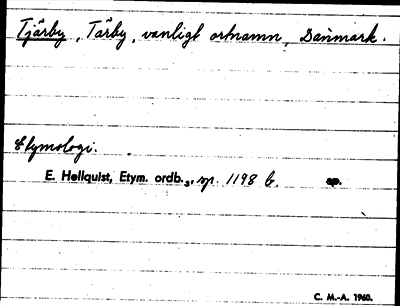 Tjärby, Tärby, vanligt ortnamn, Danmark.
Etymologi.
E. Hellquist, Etym. ordb.3, sp. 1198 b. sp.
C. M.-A. 1960.